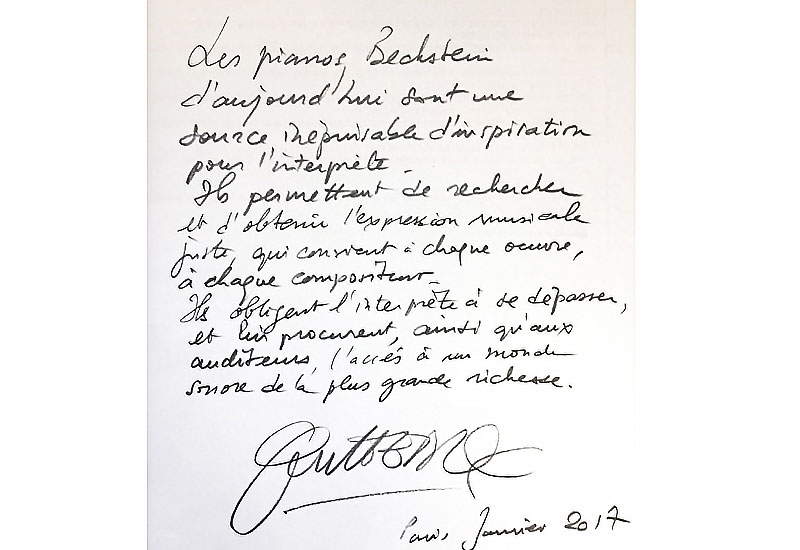 Les pianos Bechstein
d'aujourd'hui sont une
source inépuisable d'inspiration
pour l'interprète.
Ils permettent de rechercher
et d'obtenir l'expression musicale
juste, qui convient à chaque oeuvre,
à chaque compositeur.
Ils obligent l'interprète à se dépasser,
et lui procurent, ainsi qu'aux
auditeurs, l'accés à un monde
sonore de la plus grande richesse.
Paris, Janvier 2017